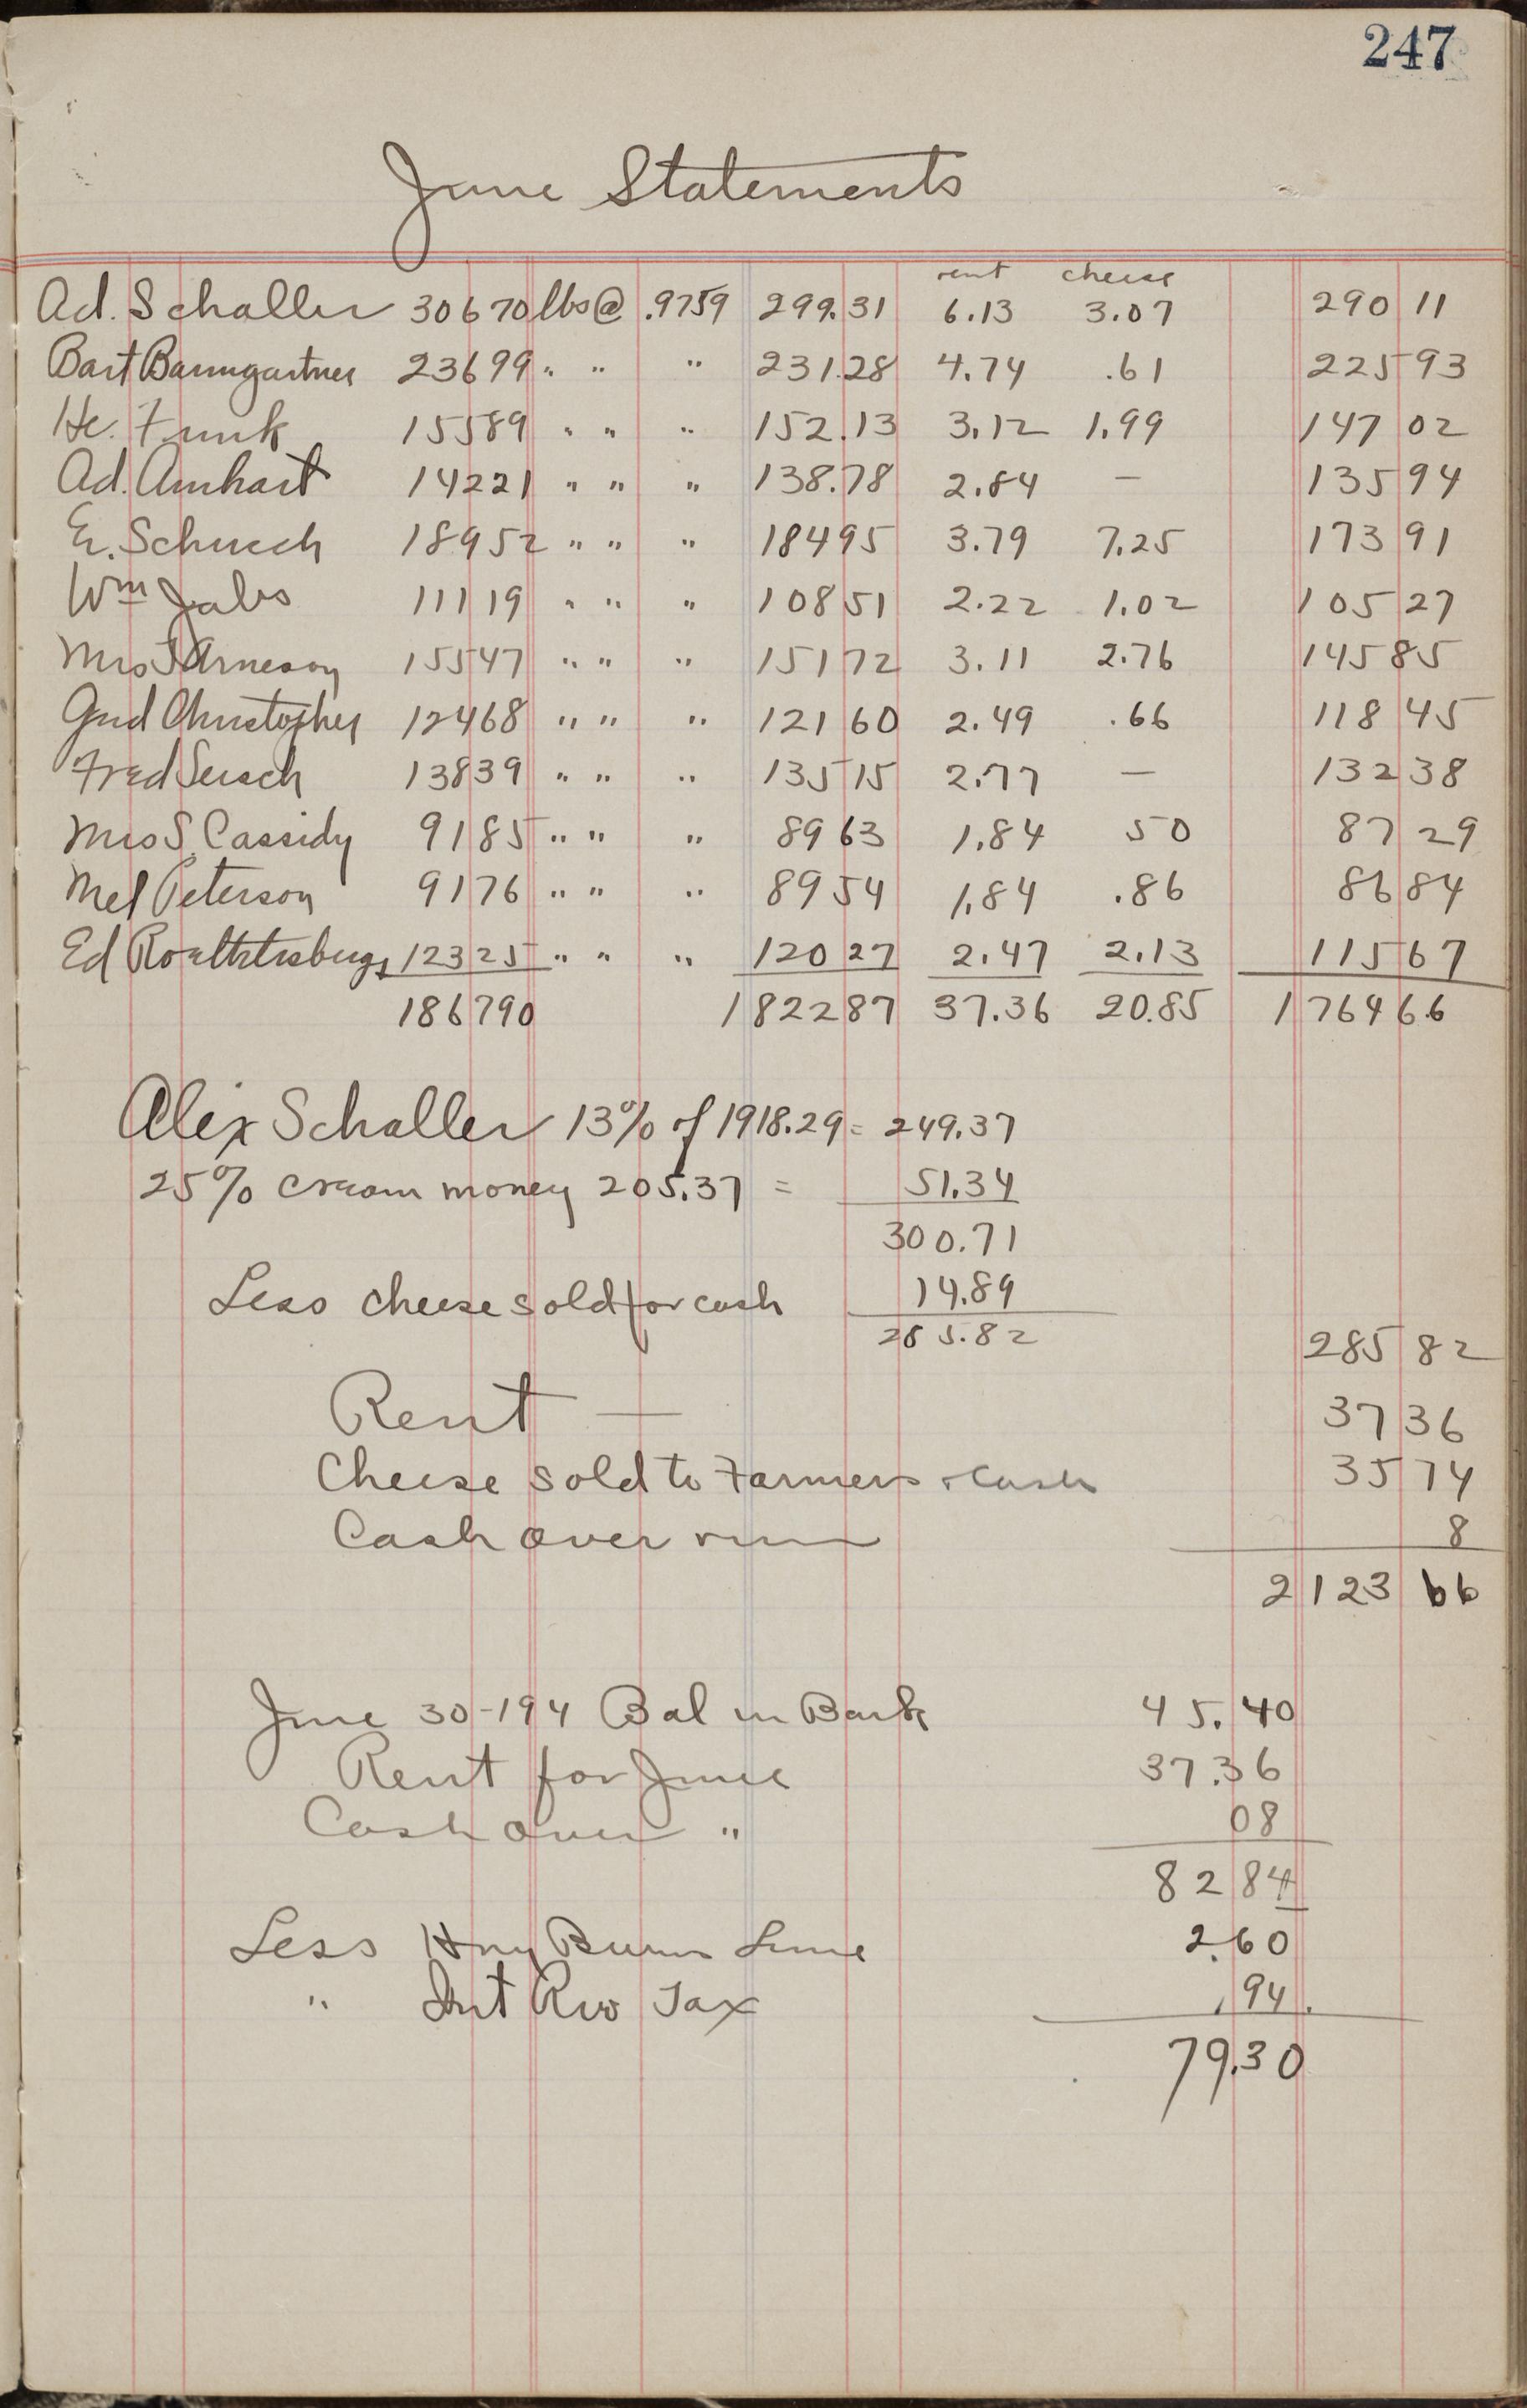 247
June Statements
rent cheese
Ad. Schaller 30670 lbs @ .9759 299.31 6.13 3.07 290 11
Bart Baumgartner 23699 " " " 231.28 4.74 .61 225 93
He. Funk 15589 " " " 152.13 3.12 1.99 147 02
Ad. Amhart 14221 " " " 138.78 2.84 — 135 94
E. Schuech 18952 " " " 184 95 3.79 7.25 173 91
Wm Jabs 11119 " " " 108 51 2.22 1.02 105 27
Mrs J Arneson 15547 " " " 151 72 3.11 2.76 145 85
Gud Christopher 12468 " " " 121 60 2.49 .66 118 45
Fred Sersch 13839 " " " 135 15 2.77 — 132 38
Mrs S. Cassidy 9185 " " " 89 63 1.84 50 87 29
Mel Peterson 9176 " " " 89 54 1.84 .86 86 84
Ed 12325 " " " 120 27 2.47 2.13 115 67
186790 1822 87 37.36 20.85 1764 66
Alex Schaller 13% of 1918.29 = 249.37
25% cream money 205.37 = 51.34
300.71
Less cheese sold for cash 14.89
285.82 285 82
Rent — 37 36
Cheese sold to Farmers & Cash 35 74
Cash over run 8
2123 66
June 30-194 Bal in Bank 45.40
Rent for June 37.36
Cash over " 08
82 84
Less Hny Burns Lime 2.60
" Int Rev Tax .94
79.30